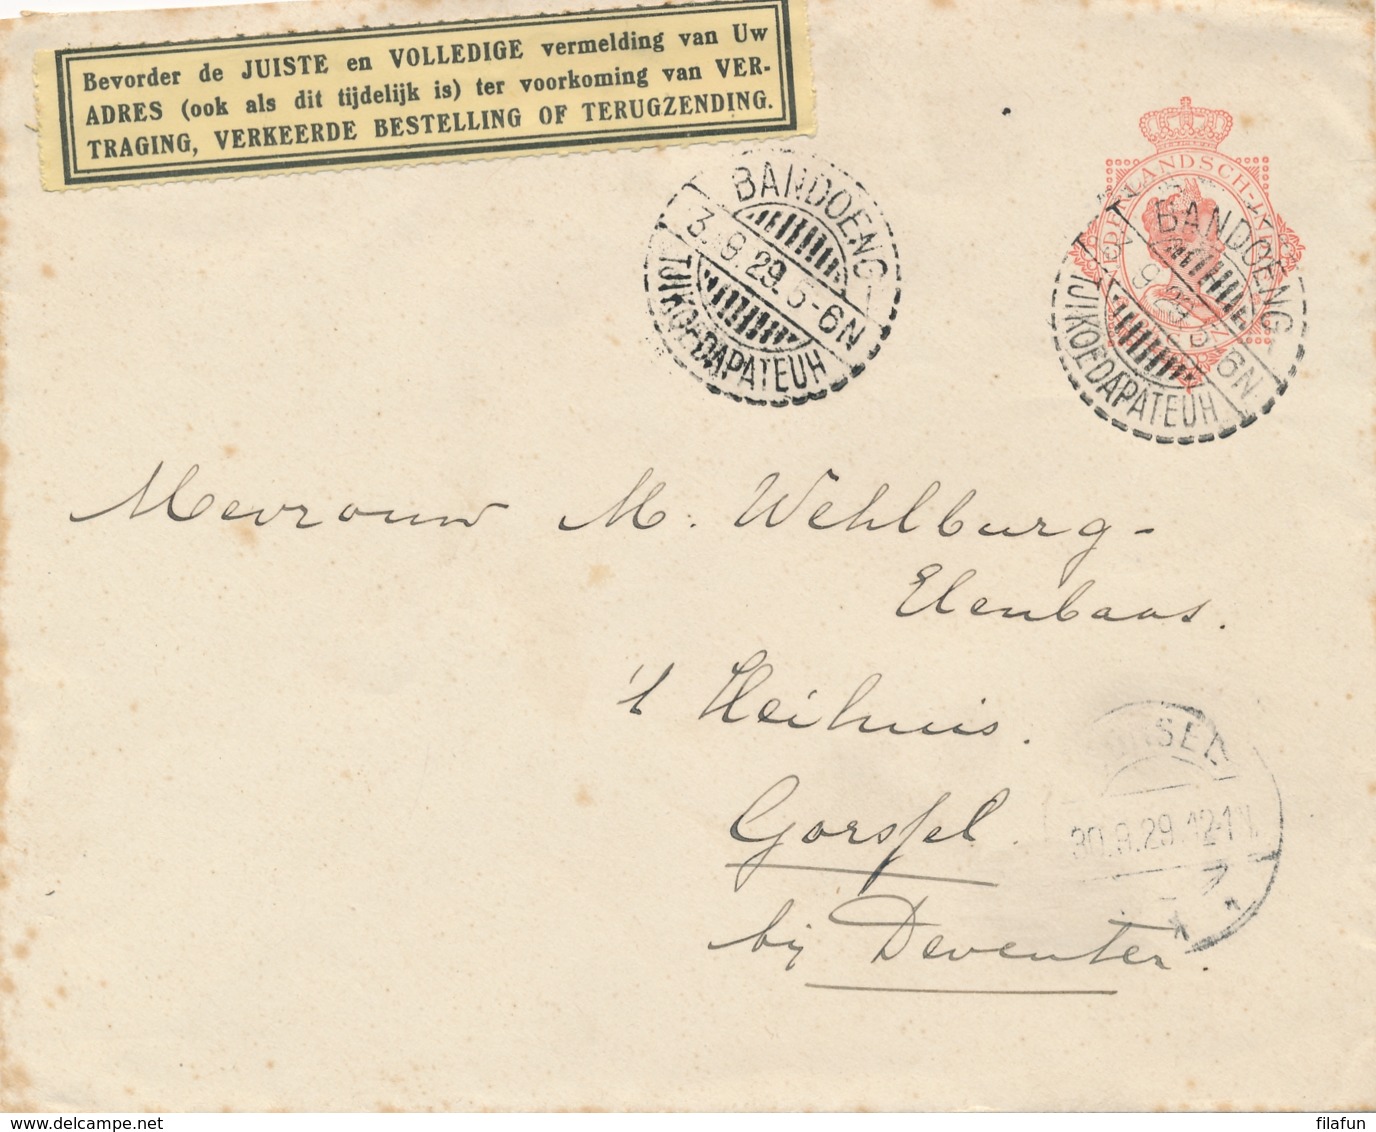 Bevorder de JUISTE en VOLLEDIGE vermelding van Uw
ADRES (ook als dit tijdelijk is) ter voorkoming van VER-
TRAGING, VERKEERDE BESTELLING OF TERUGZENDING.
BANDOENG
3.9.29.5-6N
TJIKOEDAPATEUH
NEDERLANDSCH-INDIË
BANDOENG
3.9.29.5-6N
TJIKOEDAPATEUH
Mevrouw M. Wehlburg-
Elenbaas.
't Heihuis.
Gorssel.
bij Deventer.
GORSSEL
30.9.29.12-1N.
www.delcampe.net
filafun